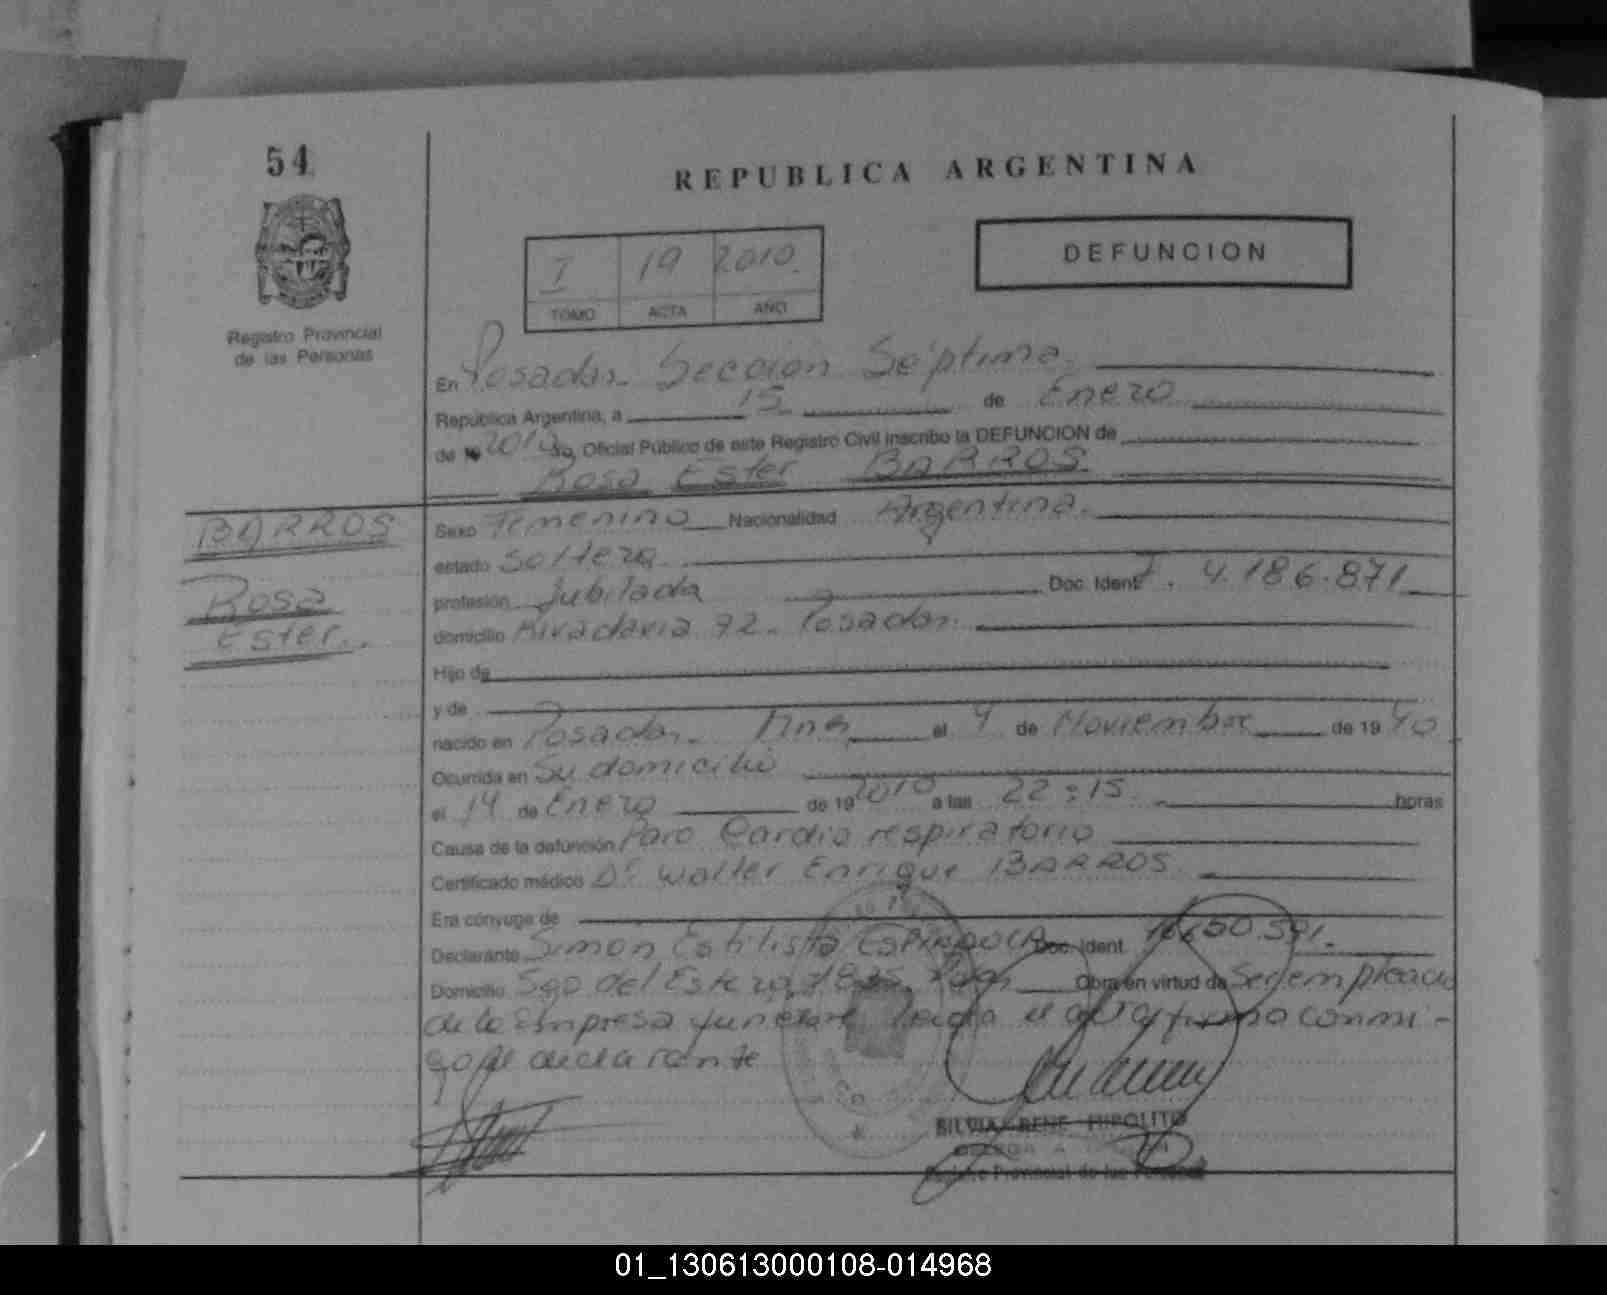 54
REPUBLICA ARGENTINA
Registro Provincial
de las Personas
I 19 2010.
TOMO ACTA AÑO
DEFUNCION
En Posadas. Sección Séptima.
República Argentina, a 15 de Enero
de 19 2010 yo, Oficial Público de este Registro Civil inscribo la DEFUNCION de
Rosa Ester BARROS.
BARROS
Rosa
Ester.
Sexo Femenino Nacionalidad Argentina.
estado Soltera.
profesión Jubilada Doc. Ident. F. 4.186.871
domicilio Rivadavia 72. Posadas.
Hijo de
y de
nacido en Posadas. Mnes el 4 de Noviembre de 19 40
Ocurrida en Su domicilio
el 14 de Enero de 19 2010 a las 22:15. horas
Causa de la defunción Paro Cardio respiratorio
Certificado médico Dr. Walter Enrique BARROS.
Era cónyuge de
Declarante Simon Estilisto ESPINDOLA Doc. Ident.
Domicilio Sgo del Estero Obra en virtud de Ser empleado
de la Empresa funebre Leida el acta firma conmi-
go el declarante
SILVIA RENE HIPOLITO
Registro Provincial de las Personas
01_130613000108-014968